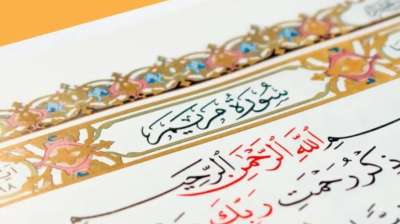 سُورَةُ مَرْيَمَ
اللَّهِ الرَّحْمَنِ الرَّحِيمِ
ذِكْرُ رَحْمَتِ رَبِّكَ